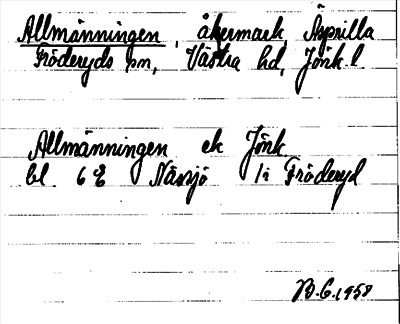 Allmänningen, åkermark Äsprilla
Fröderyds sn, Västra hd, Jönk. l
Allmänningen ek Jönk
bl 6 E Nässjö 1:a Fröderyd
B.G. 1958